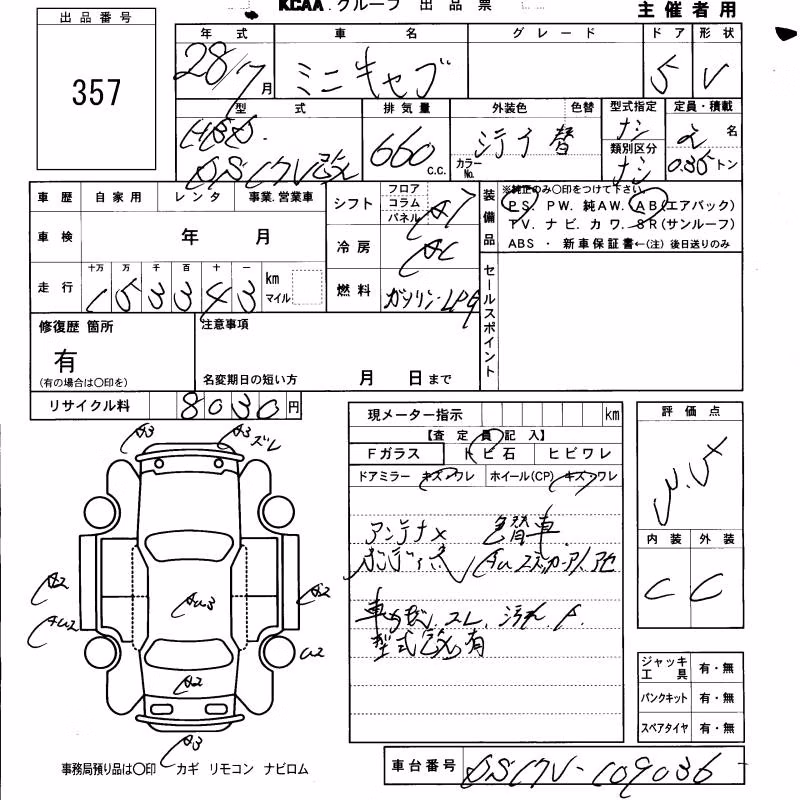 KCAA.グループ 出品票
主催者用
出品番号
357
年式 車名 グレード ドア 形状
28/7月 ミニキャブ 5 V
型式 排気量 外装色 色替 型式指定 定員・積載
HBD- DS17V改 660 c.c. シロ 替 カラーNo. ナシ 類別区分 ナシ 2名 0.35トン
車歴 自家用 レンタ 事業.営業車
シフト フロア コラム パネル AT
装備品 ※純正のみ〇印をつけて下さい
P.S. PW. 純AW. AB(エアバック)
TV. ナビ. カワ. SR(サンルーフ)
ABS ・ 新車保証書←(注) 後日送りのみ
車検 年 月
冷房 AC
走行 十万 万 千 百 十 一 km マイル
153343
燃料 ガソリン・LPG
セールスポイント
修復歴 箇所
有
(有の場合は〇印を)
注意事項
名変期日の短い方 月 日まで
リサイクル料 8030円
現メーター指示 km
【査定員記入】
Fガラス トビ石 ヒビワレ
ドアミラー キズ・ワレ ホイール(CP) キズ・ワレ
アンテナ× 色替車.
型式改 有
評価点
内装 外装
C C
A3 A3 ズレ
A2 AU3 A2
AU2 A2 U2
A3
ジャッキ工具 有・無
パンクキット 有・無
スペアタイヤ 有・無
事務局預り品は〇印 カギ リモコン ナビロム
車台番号 DS17V-109036